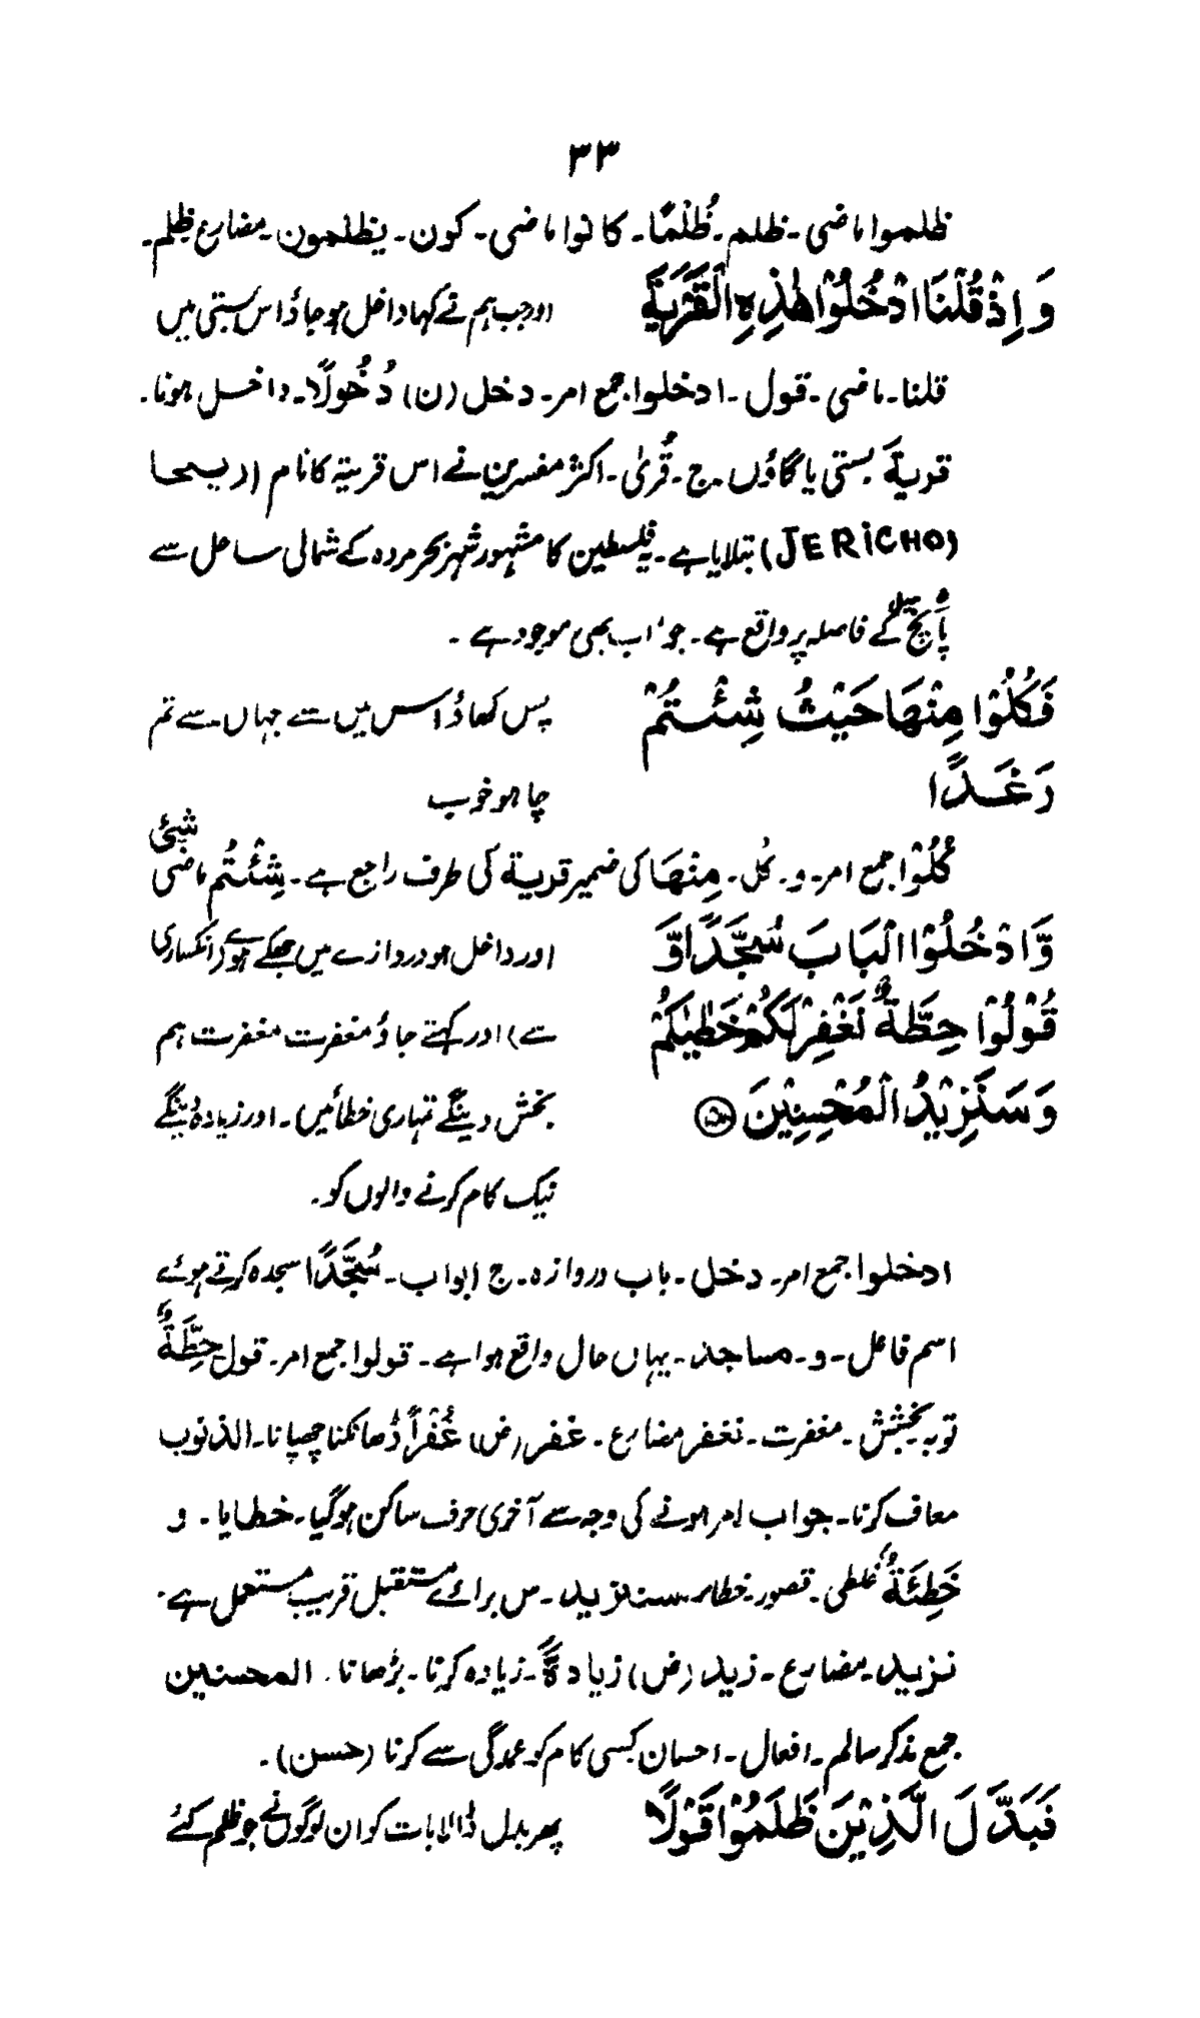 ۳۳
ظلموا ماضی۔ ظلم۔ ظُلْمًا۔ کانوا ماضی۔ کون۔ یظلمون۔ مضارع ظلم۔
وَاِذْ قُلْنَا ادْخُلُوْا هٰذِهِ الْقَرْيَةَ اور جب ہم نے کہا داخل ہو جاؤ اس بستی میں
قلنا۔ ماضی۔ قول۔ ادخلوا جمع امر۔ دخل (ن) دُخُولًا۔ داخل ہونا۔
قریةَ بستی یا گاؤں۔ ج۔ قُریٰ۔ اکثر مفسرین نے اس قریۃ کا نام (اریحا
(JERICHO) بتلایا ہے۔ یہ فلسطین کا مشہور شہر بحر مردہ کے شمالی ساحل سے
پانچ میل کے فاصلہ پر واقع ہے۔ جو اب بھی موجود ہے۔
فَكُلُوْا مِنْهَا حَيْثُ شِئْتُمْ پس کھاؤ اس میں سے جہاں سے تم
رَغَدًا چاہو خوب
كُلُوْا جمع امر۔ و۔ كُل۔ مِنْهَا کی ضمیر قریة کی طرف راجع ہے۔ شِئْتُم ماضی شیئ
وَّادْخُلُوْا الْبَابَ سُجَّدًا وَّ اور داخل ہو دروازے میں جھکے ہوئے (انکساری
قُوْلُوْا حِطَّةٌ نَغْفِرْ لَكُمْ خَطٰيٰكُمْ سے) اور کہتے جاؤ مغفرت مغفرت ہم
وَسَنَزِيْدُ الْمُحْسِنِيْنَ ۝ بخش دینگے تمہاری خطائیں۔ اور زیادہ دینگے
نیک کام کرنے والوں کو۔
ادخلوا جمع امر۔ دخل۔ باب دروازہ۔ ج ابواب۔ سُجَّدًا سجدہ کرتے ہوئے
اسم فاعل۔ و۔ ساجد۔ یہاں حال واقع ہوا ہے۔ قولوا جمع امر۔ قول حِطَّةٌ
توبہ بخشش۔ مغفرت۔ نغفر مضارع۔ غفر (ض) غُفْراً ڈھانکنا چھپانا۔ الذنوب
معاف کرنا۔ جواب امر ہونے کی وجہ سے آخری حرف ساکن ہوگیا۔ خطایا۔ و
خَطِئَةٌ غلطی۔ قصور۔ خطا۔ سنزید۔ س برائے مستقبل قریب مستعمل ہے۔
نزید۔ مضارع۔ زید (ض) زیادةً۔ زیادہ کرنا۔ بڑھانا۔ المحسنین
جمع مذکر سالم۔ افعال۔ احسان کسی کام کو عمدگی سے کرنا (حسن)۔
فَبَدَّلَ الَّذِيْنَ ظَلَمُوْا قَوْلًا پھر بدل ڈالا بات کو ان لوگوں نے جو ظلم کئے